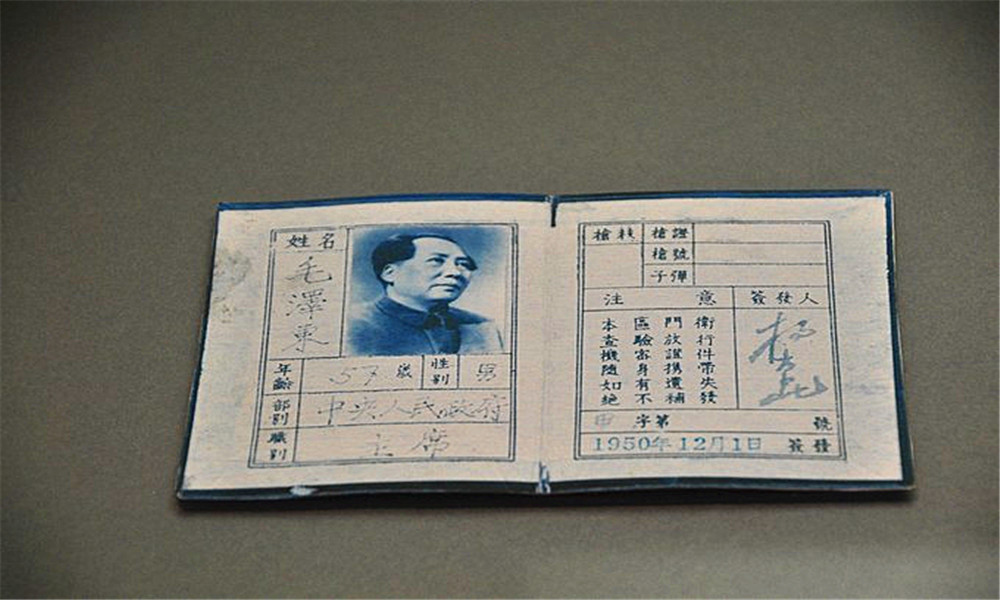 姓名
毛澤東
年齡 57歲 性別 男
部別 中央人民政府
職別 主席
槍枝 槍證
槍號
子彈
注意 簽發人
本區門衛
查驗放行
機密證件
隨身携帶
如有遺失
絕不補發
字第 號
1950年12月1日 簽發